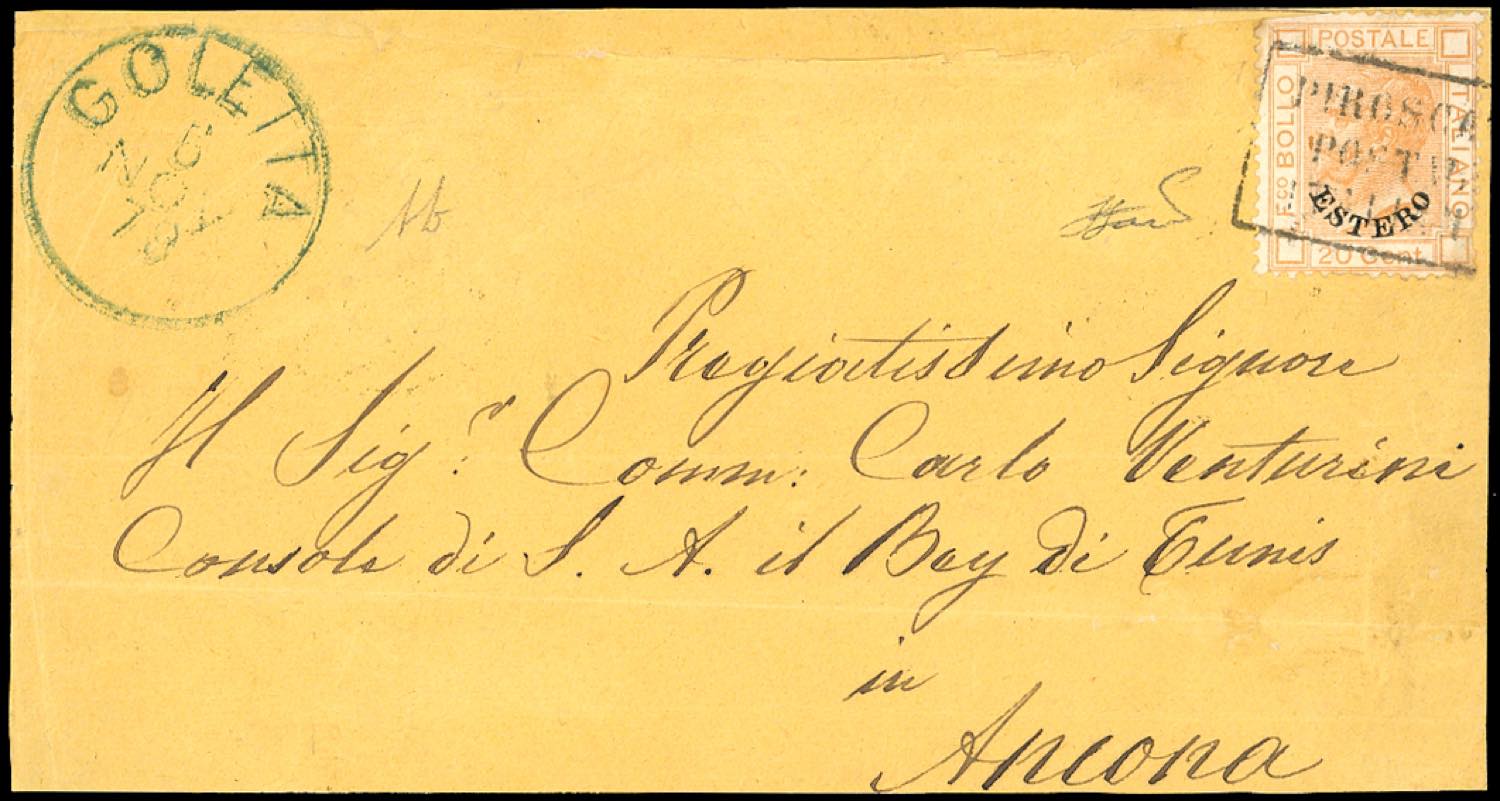 GOLETTA
6
NOV
78
POSTALE
Fco BOLLO
ITALIANO
20 Cent.
ESTERO
PIROSCA
POST
Pregiatissimo Signore
Il Sig.r Comm: Carlo Venturini
Console di S. A. il Bey di Tunis
in
Ancona